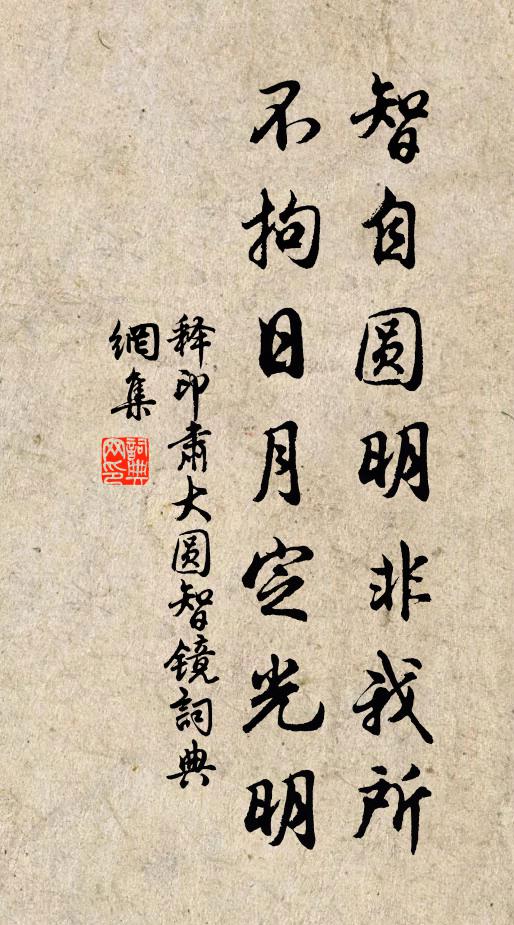 智自圆明非我所
不拘日月定光明
释印肃大圆智镜詞典
網集
詞典网印